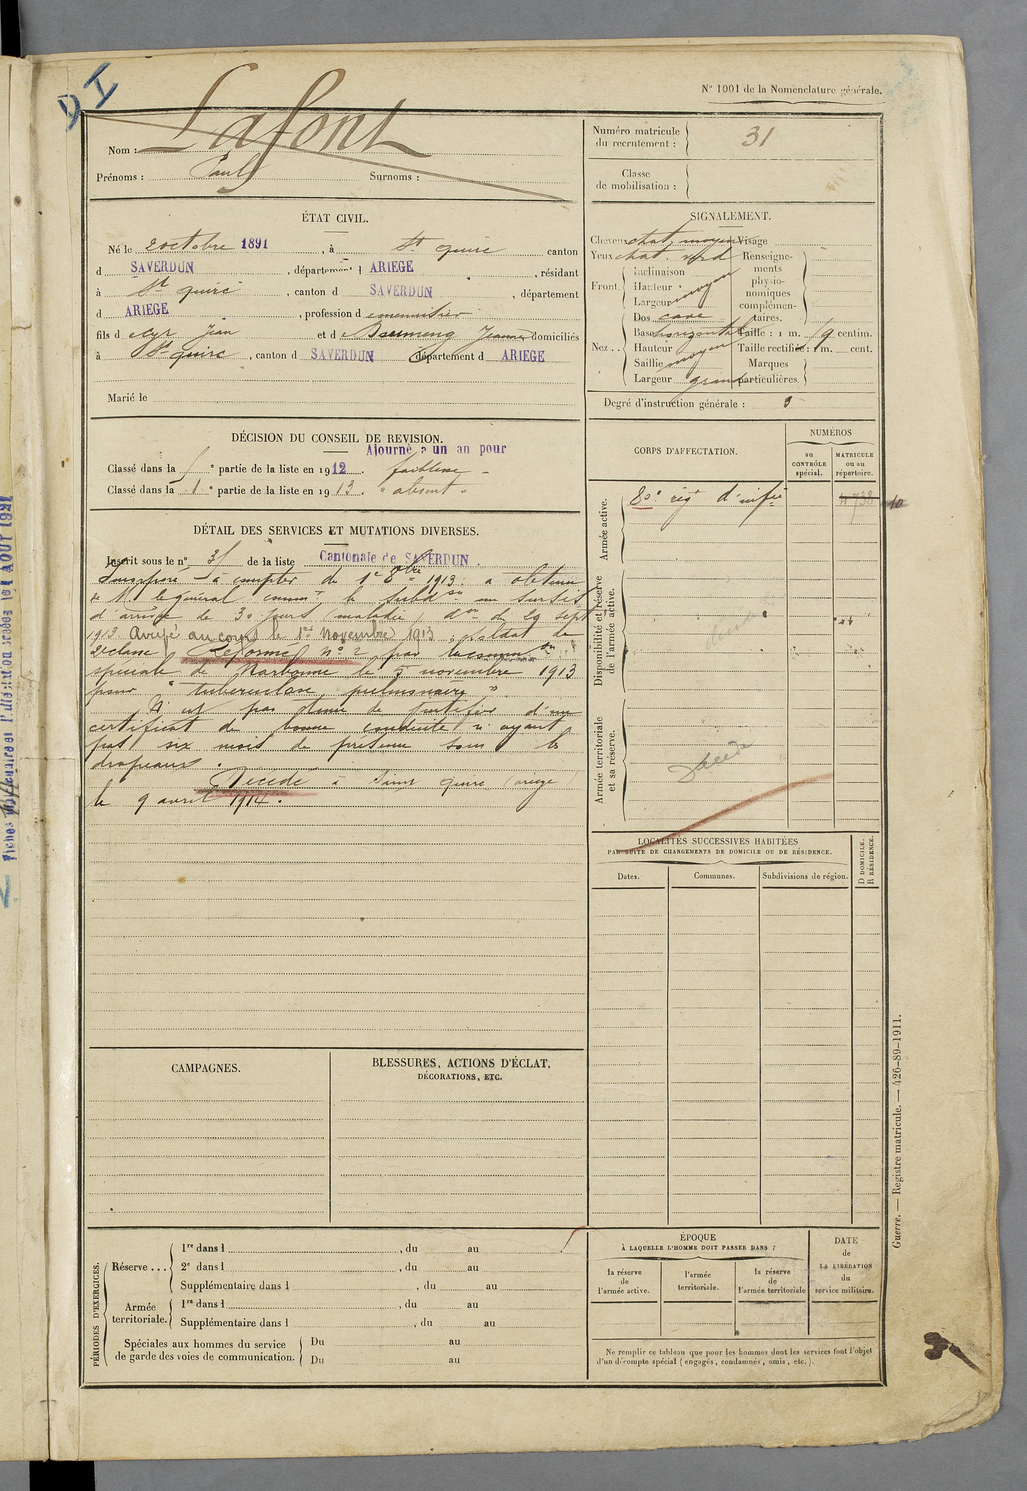 N° 1001 de la Nomenclature générale.
D I
Nom : Lafont
Prénoms : Paul Surnoms :
Numéro matricule du recrutement : 31
Classe de mobilisation :
ÉTAT CIVIL.
Né le 2 octobre 1891, à St Quirc canton
d SAVERDUN, département d ARIEGE, résidant
à St Quirc, canton d SAVERDUN, département
d ARIEGE, profession d menuisier
fils d Cyr Jean et d Jeanne domiciliés
à St Quirc, canton d SAVERDUN département d ARIEGE
Marié le
SIGNALEMENT.
Cheveux chat. moyen Visage
Yeux chat. verd Renseignements physionomiques complémentaires.
Front. Inclinaison
Hauteur moyen
Largeur
Dos cave
Nez .. Base horizontale Taille : 1 m. 19 centim.
Hauteur Taille rectifiée : 1 m. cent.
Saillie moyen Marques
Largeur grand particulières.
Degré d'instruction générale : 3
DÉCISION DU CONSEIL DE REVISION.
Ajourné a un an pour
Classé dans la partie de la liste en 1912. faiblesse
Classé dans la 1e partie de la liste en 1913. "absent"
DÉTAIL DES SERVICES ET MUTATIONS DIVERSES.
Inscrit sous le n° 31 de la liste Cantonale de SAVERDUN.
Incorporé à compter du 1er 8bre 1913. a obtenu
de M. le général comm.t la subd.on un sursis
d'arrivée de 30 jours (maladie) d.on du 29 sept
1913. Arrivé au corps le 1er Novembre 1913, soldat de
2e classe. Réformé N° 2 par la comm.on
spéciale de Narbonne le 5 novembre 1913
pour "tuberculose pulmonaire".
N'est pas tenu de justifier d'un
certificat de bonne conduite n'ayant
pas six mois de présence sous les
drapeaux.
Décédé à Saint Quirc (ariège)
le 9 avril 1914.
CORPS D'AFFECTATION.
NUMÉROS
au CONTRÔLE spécial.
MATRICULE ou au répertoire.
Armée active.
80e rég.t d'inf.ie
Disponibilité et réserve de l'armée active.
Armée territoriale et sa réserve.
Décédé
LOCALITÉS SUCCESSIVES HABITÉES
PAR SUITE DE CHANGEMENTS DE DOMICILE OU DE RÉSIDENCE.
Dates. Communes. Subdivisions de région. D DOMICILE. R RÉSIDENCE.
CAMPAGNES.
BLESSURES, ACTIONS D'ÉCLAT,
DÉCORATIONS, ETC.
PÉRIODES D'EXERCICES.
Réserve ... 1re dans l , du au
2e dans l , du au
Supplémentaire dans l , du au
Armée territoriale. 1re dans l , du au
Supplémentaire dans l , du au
Spéciales aux hommes du service Du au
de garde des voies de communication. Du au
ÉPOQUE
À LAQUELLE L'HOMME DOIT PASSER DANS :
la réserve de l'armée active.
l'armée territoriale.
la réserve de l'armée territoriale
DATE de LA LIBÉRATION du service militaire.
Ne remplir ce tableau que pour les hommes dont les services font l'objet
d'un décompte spécial (engagés, condamnés, omis, etc.).
Guerre. — Registre matricule. — 426-89-1911.